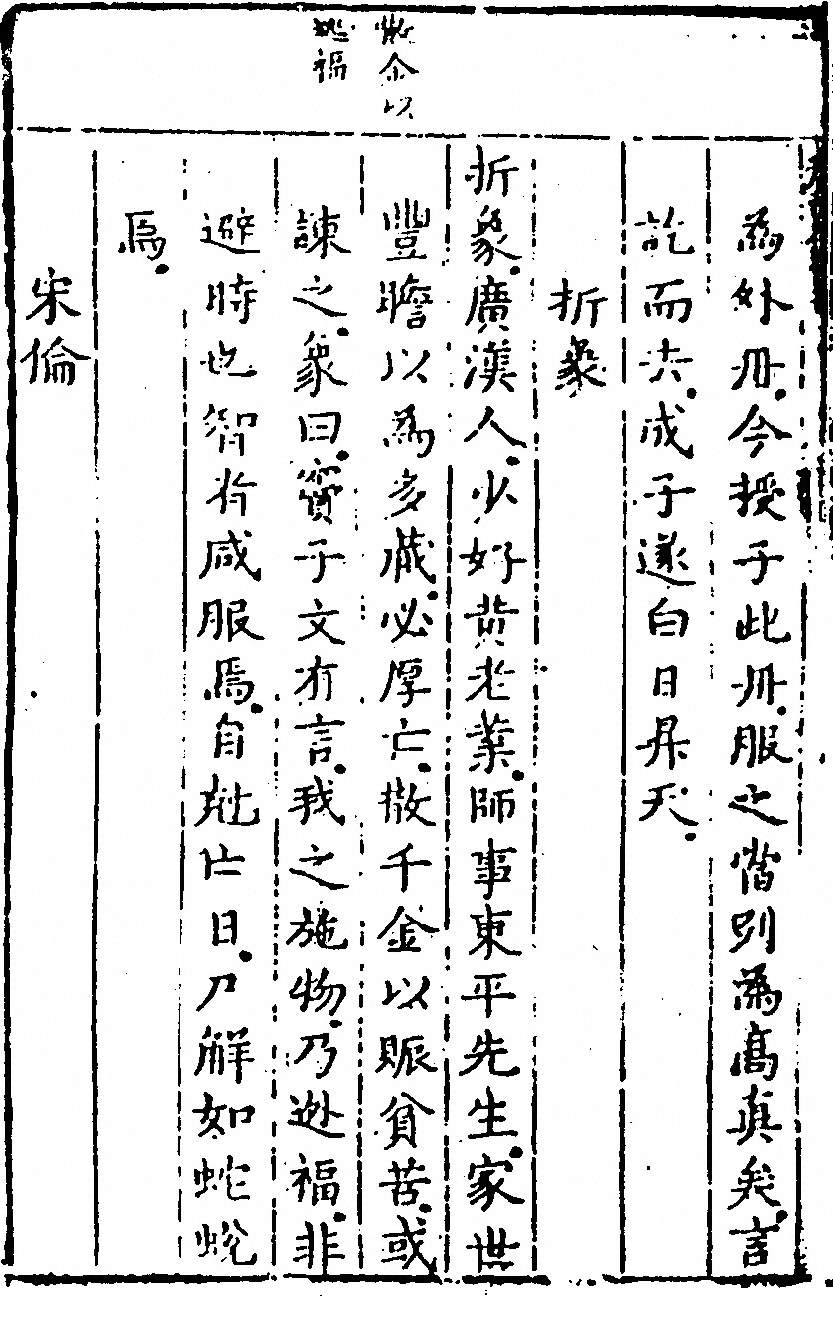 散金以
逃福
為外丹今授子此丹服之當別為高真矣言
訖而去成子遂白日昇天
折象
折象廣漢人少好黃老業師事東平先生家世
豐贍以為多藏必厚亡散千金以賑貧苦或
諫之象曰竇子文有言我之施物乃逃福非
避時也智者咸服焉自尅亡日尸解如蛇蛻
焉
宋倫